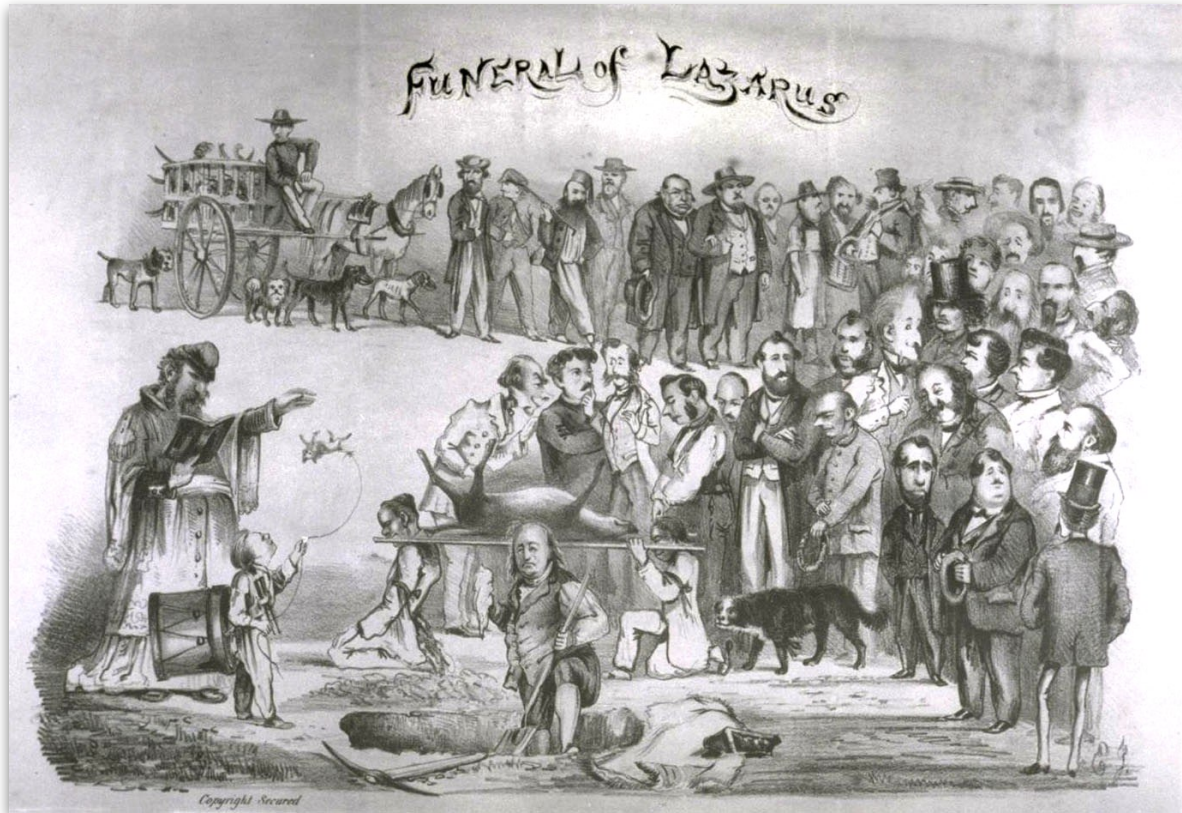 Funeral of Lazarus
Copyright Secured